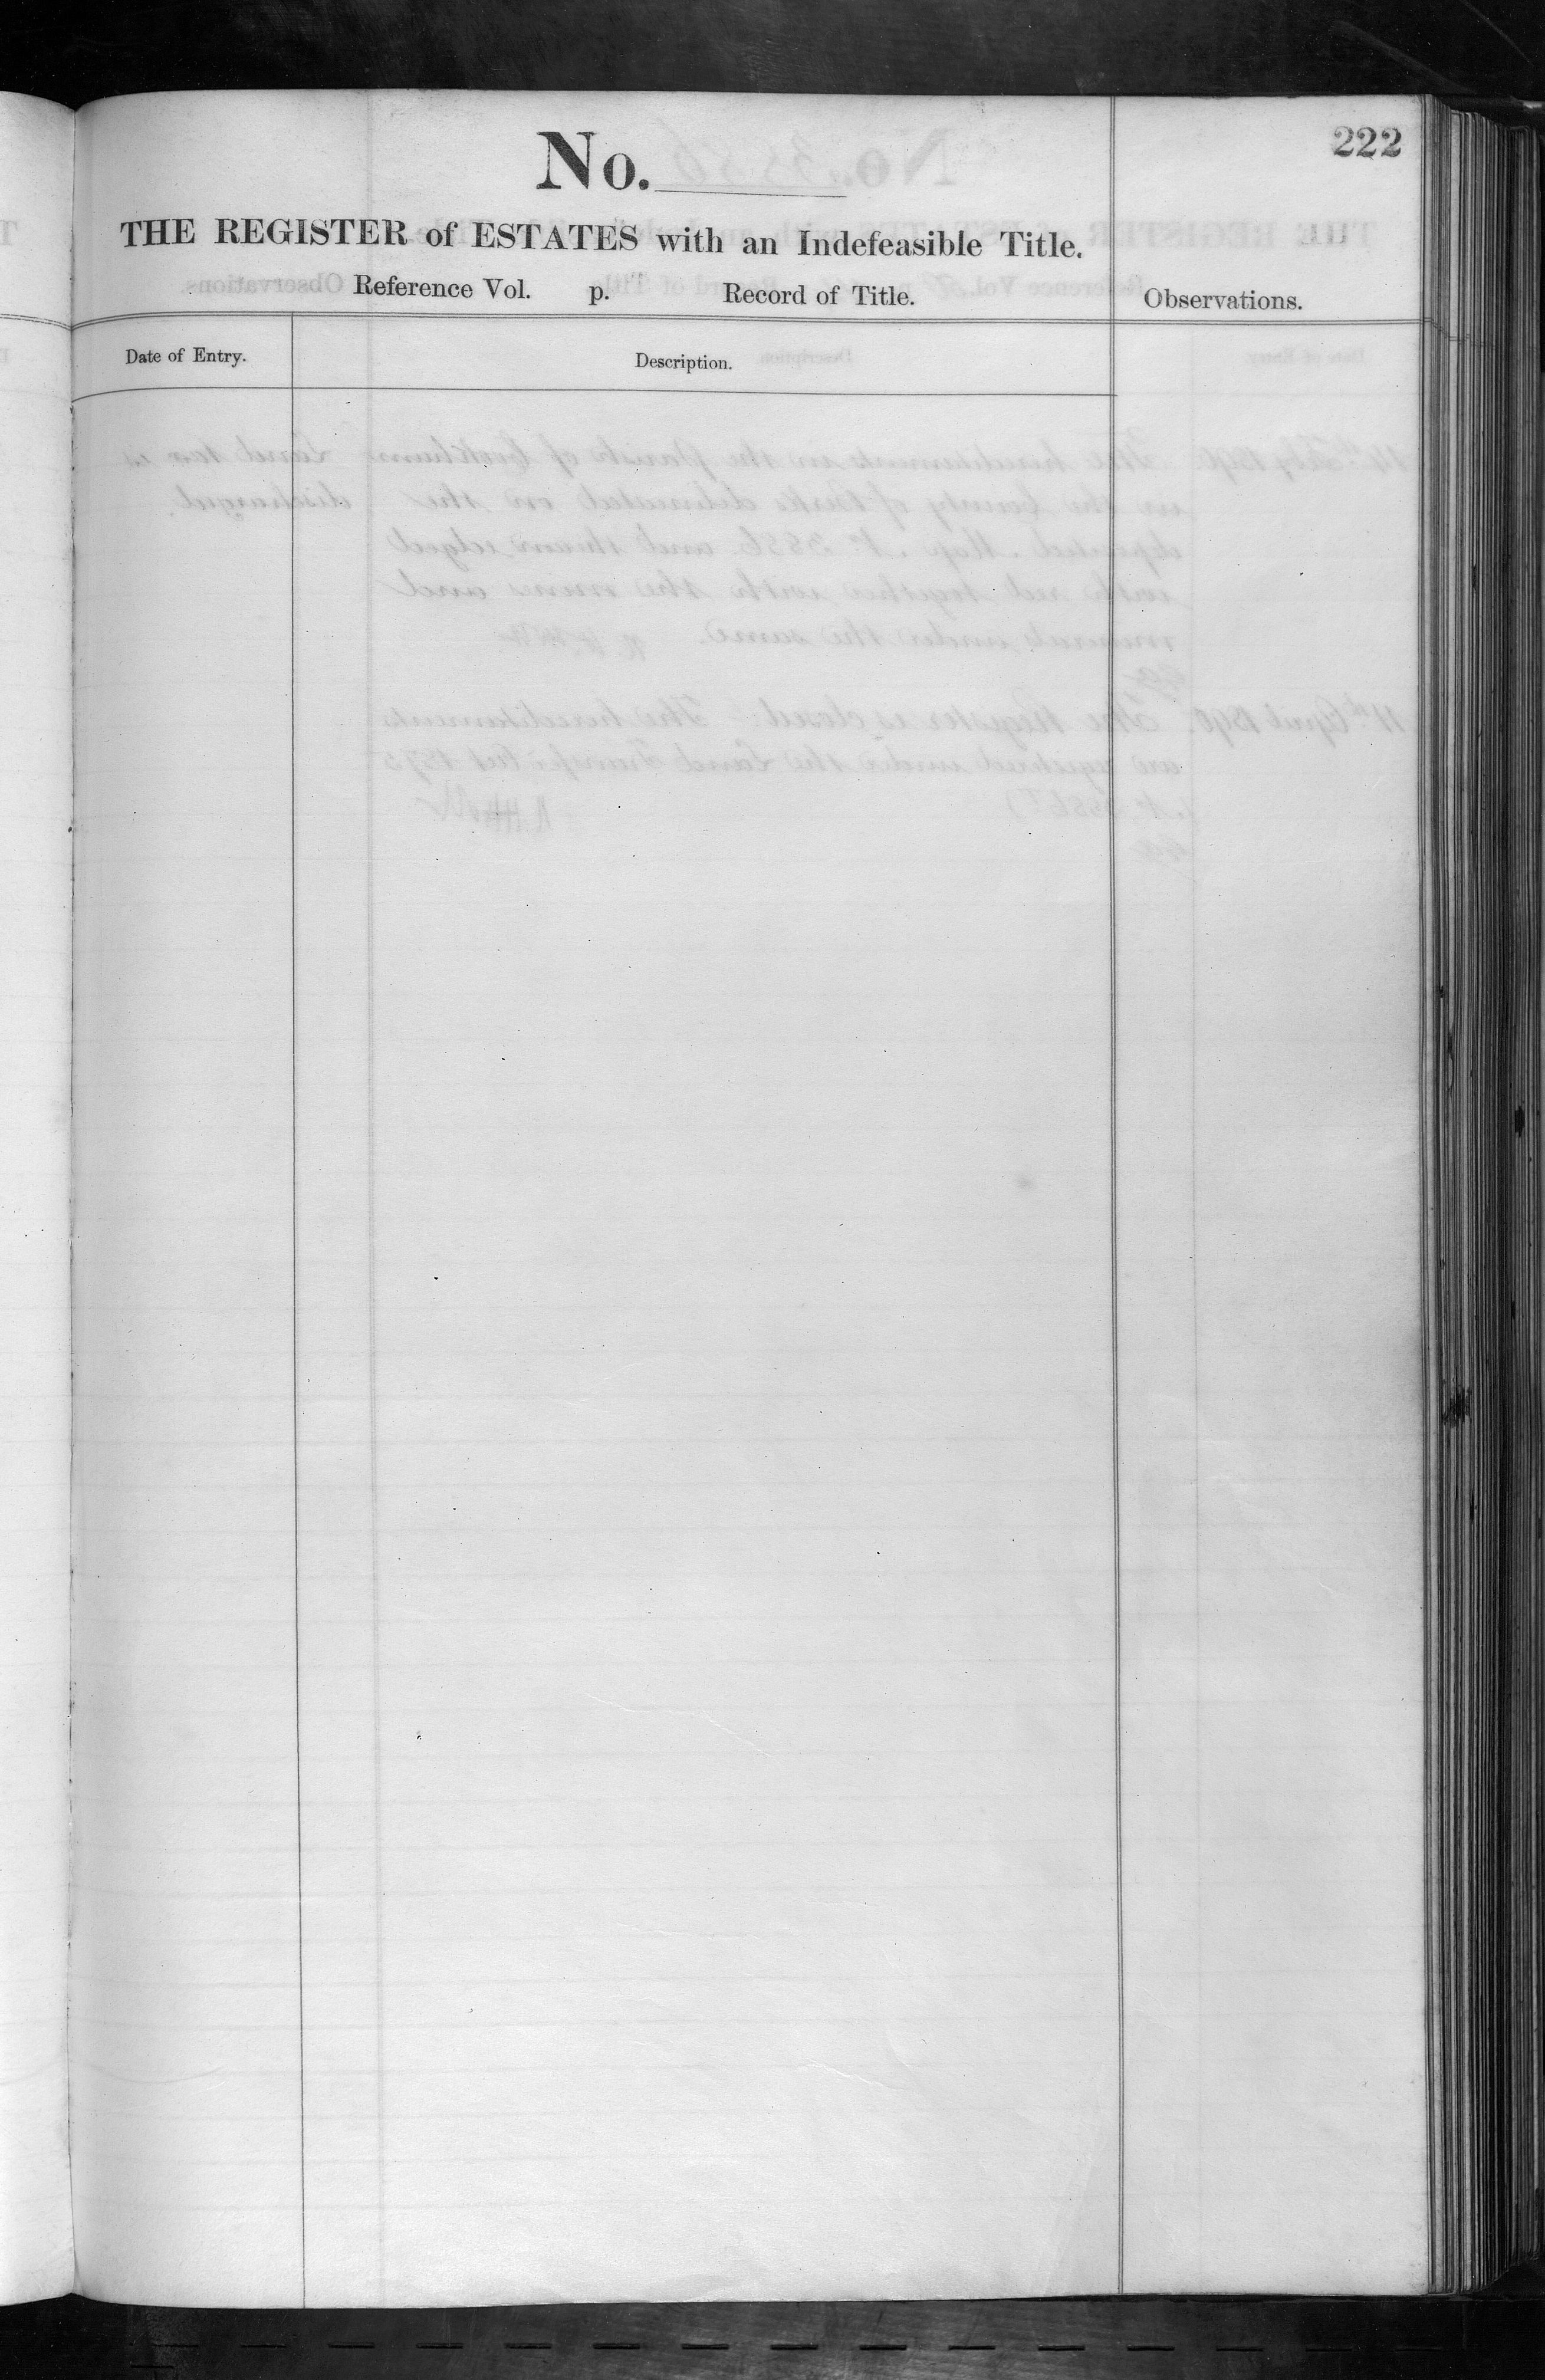 222
No.
THE REGISTER of ESTATES with an Indefeasible Title.
Reference Vol. p. Record of Title. Observations.
Date of Entry. Description.